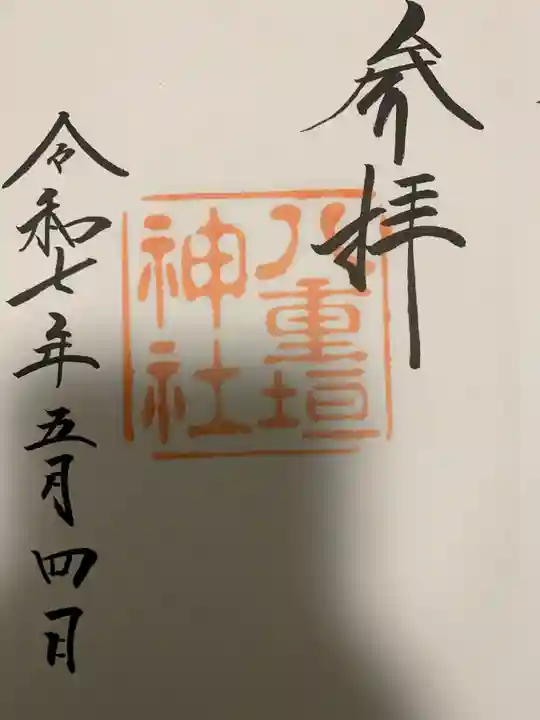 参拝
八重垣
神社
令和七年五月四日